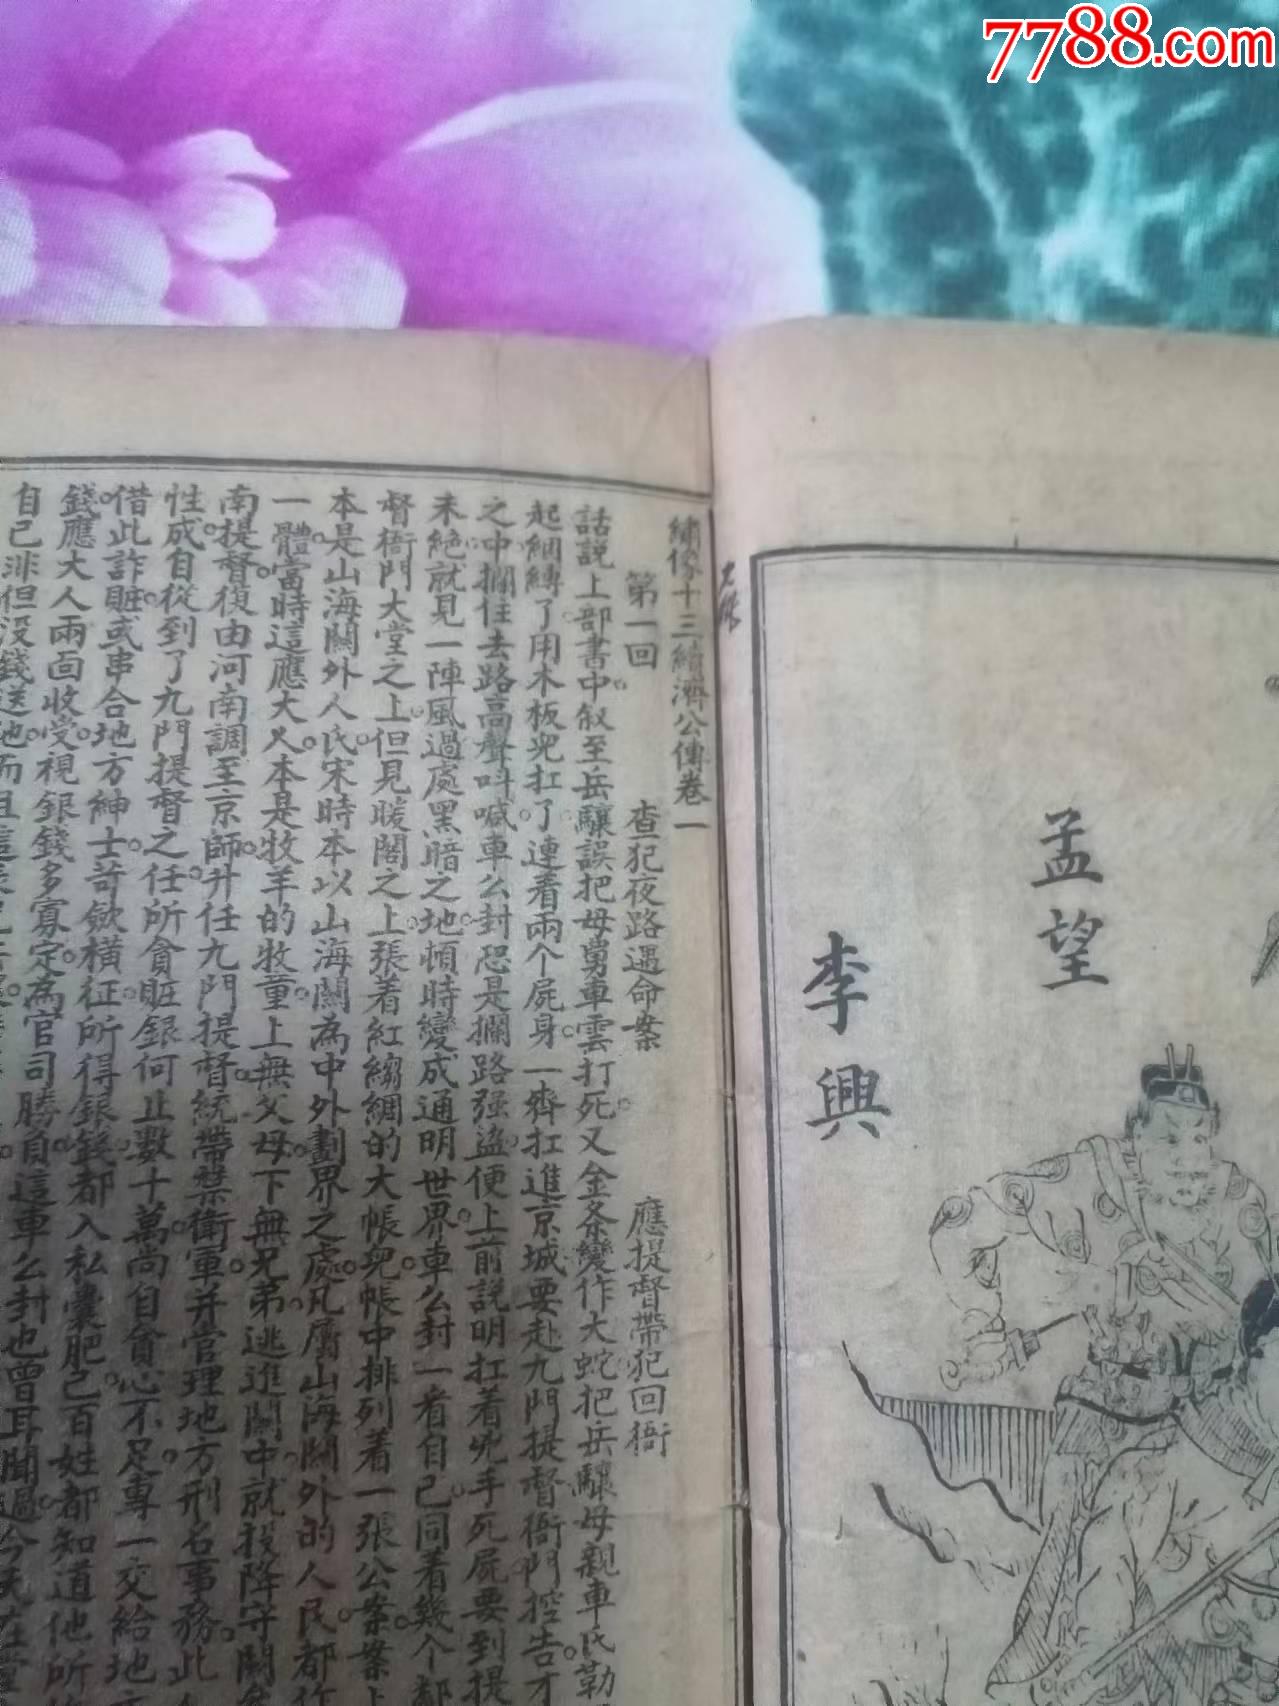 7788.com
孟望
李興
繡像十三續濟公傳卷一
第一回 查犯夜路遇命案 應提督帶犯回衙
話説上部書中敘至岳驤誤把母舅車雲打死又金条變作大蛇把岳驤母親車氏勒
起綑縛了用木板兜扛了連着兩个屍身一齊扛進京城要赴九門提督衙門控告才
之中攔住去路高聲呌喊車么封恐是攔路强盜便上前説明扛着兇手死屍要到提
未絶就見一陣風過處黑暗之地頓時變成通明世界車么封一看自己同着幾个都
督衙門大堂之上但見暖閣之上張着紅縐綢的大帳兜帳中排列着一張公案案上
本是山海關外人氏宋時本以山海關為中外劃界之處凡屬山海關外的人民都作
一體當時這應大人本是牧羊的牧童上無父母下無兄弟逃進關中就投降守關
南提督復由河南調至京師升任九門提督統帶禁衛軍并官理地方刑名事務此
性成自從到了九門提督之任所貪賍銀何止數十萬尚自貪心不足專一交給地
借此詐賍或串合地方紳士苛斂横征所得銀錢都入私囊肥己百姓都知道他所
錢應大人兩面收受視銀錢多寡定為官司勝負這車么封也曾耳聞過今天在
自己淮但没錢送他而且這